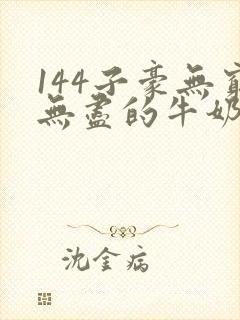 144子豪無窮
無盡的牛奶
沈金病